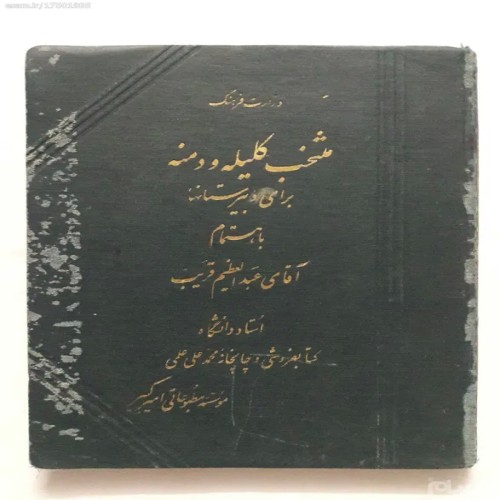 وزارت فرهنگ
منتخب کلیله و دمنه
برای دبیرستانها
باهتمام
آقای عبدالعظیم قریب
استاد دانشگاه
کتابفروشی و چاپخانه محمد علی علمی
مؤسسه مطبوعاتی امیرکبیر